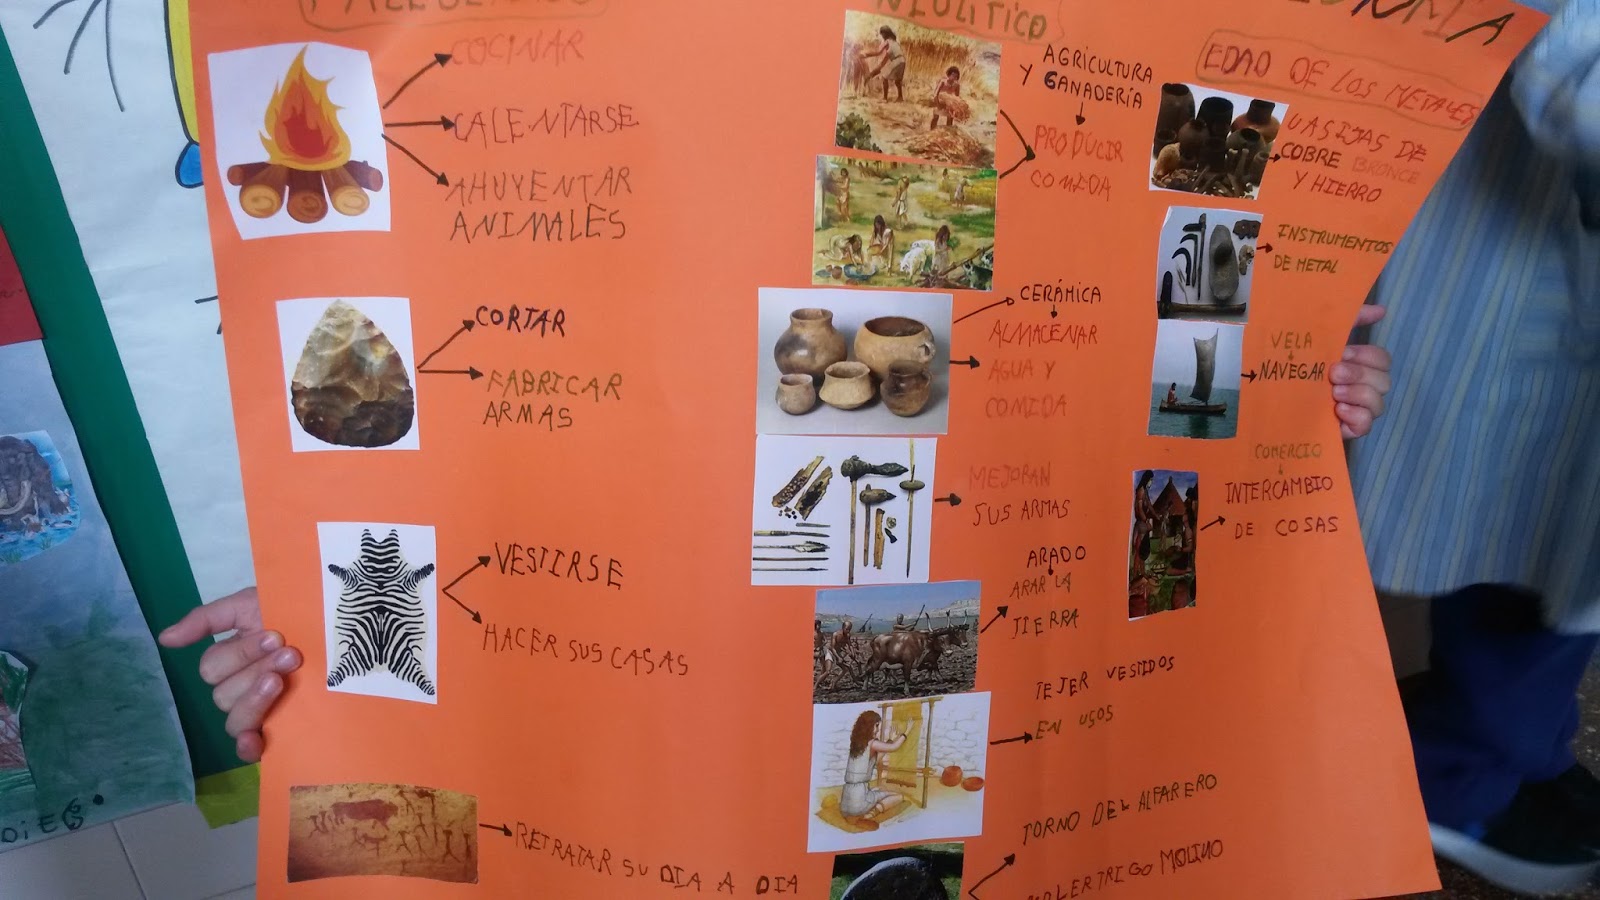 NEOLÍTICO
EDAD DE LOS METALES
COCINAR
CALENTARSE
AHUYENTAR
ANIMALES
CORTAR
FABRICAR
ARMAS
VESTIRSE
HACER SUS CASAS
RETRATAR SU DIA A DIA
AGRICULTURA
Y GANADERÍA
PRODUCIR
COMIDA
CERÁMICA
ALMACENAR
AGUA Y
COMIDA
MEJORAN
SUS ARMAS
ARADO
ARAR LA
TIERRA
TEJER VESTIDOS
EN USOS
TORNO DEL ALFARERO
TRIGO MOLINO
VASIJAS DE
COBRE BRONCE
Y HIERRO
INSTRUMENTOS
DE METAL
VELA
NAVEGAR
COMERCIO
INTERCAMBIO
DE COSAS
DIEG